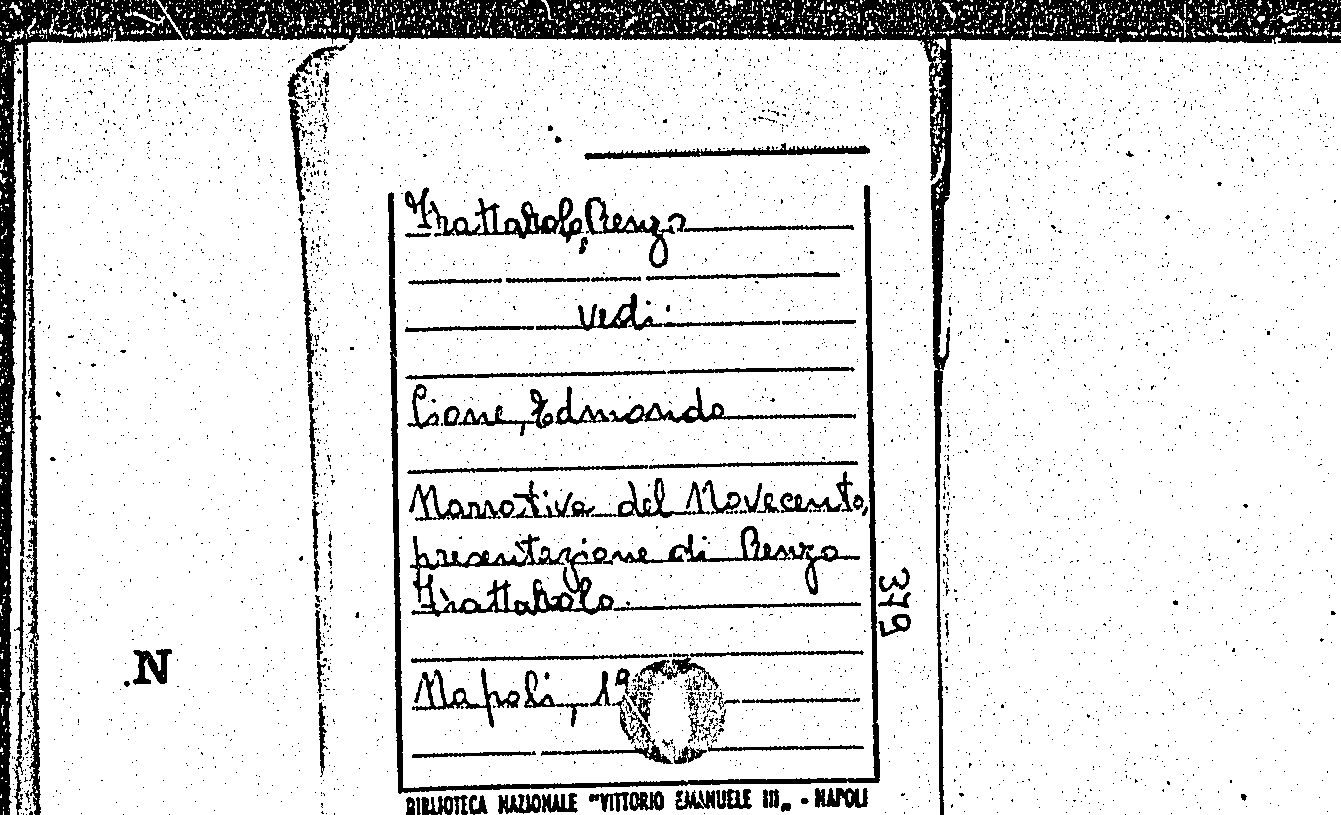 Frattarolo, Renzo
vedi:
Cione, Edmondo
Narrativa del Novecento,
presentazione di Renzo
Frattarolo.
Napoli, 19
379
.N
BIBLIOTECA NAZIONALE "VITTORIO EMANUELE III„ - NAPOLI